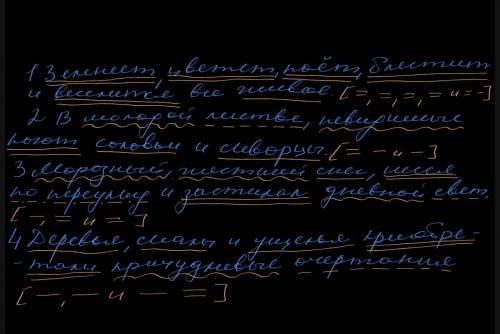 1 Зеленеет, цветёт, поёт, блестит
и веселится все живое. [=, =, =, = и =]
2 В молодой листве, невидимые
поют соловьи и скворцы. [= - и -]
3 Морозный, жесткий снег, шёл
по переулку и застилал дневной свет.
[-, - и =]
4 Деревья, скалы и ущелья приобре-
-тали причудливые очертания
[-, - и - =]